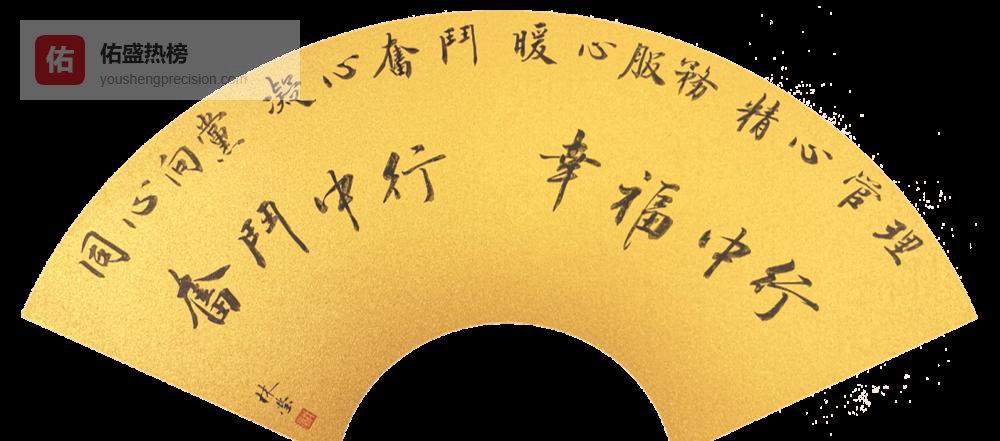 佑
佑盛热榜
youshengprecision.com
同心向黨 凝心奮鬥 暖心服務 精心管理
奮鬥中行 幸福中行